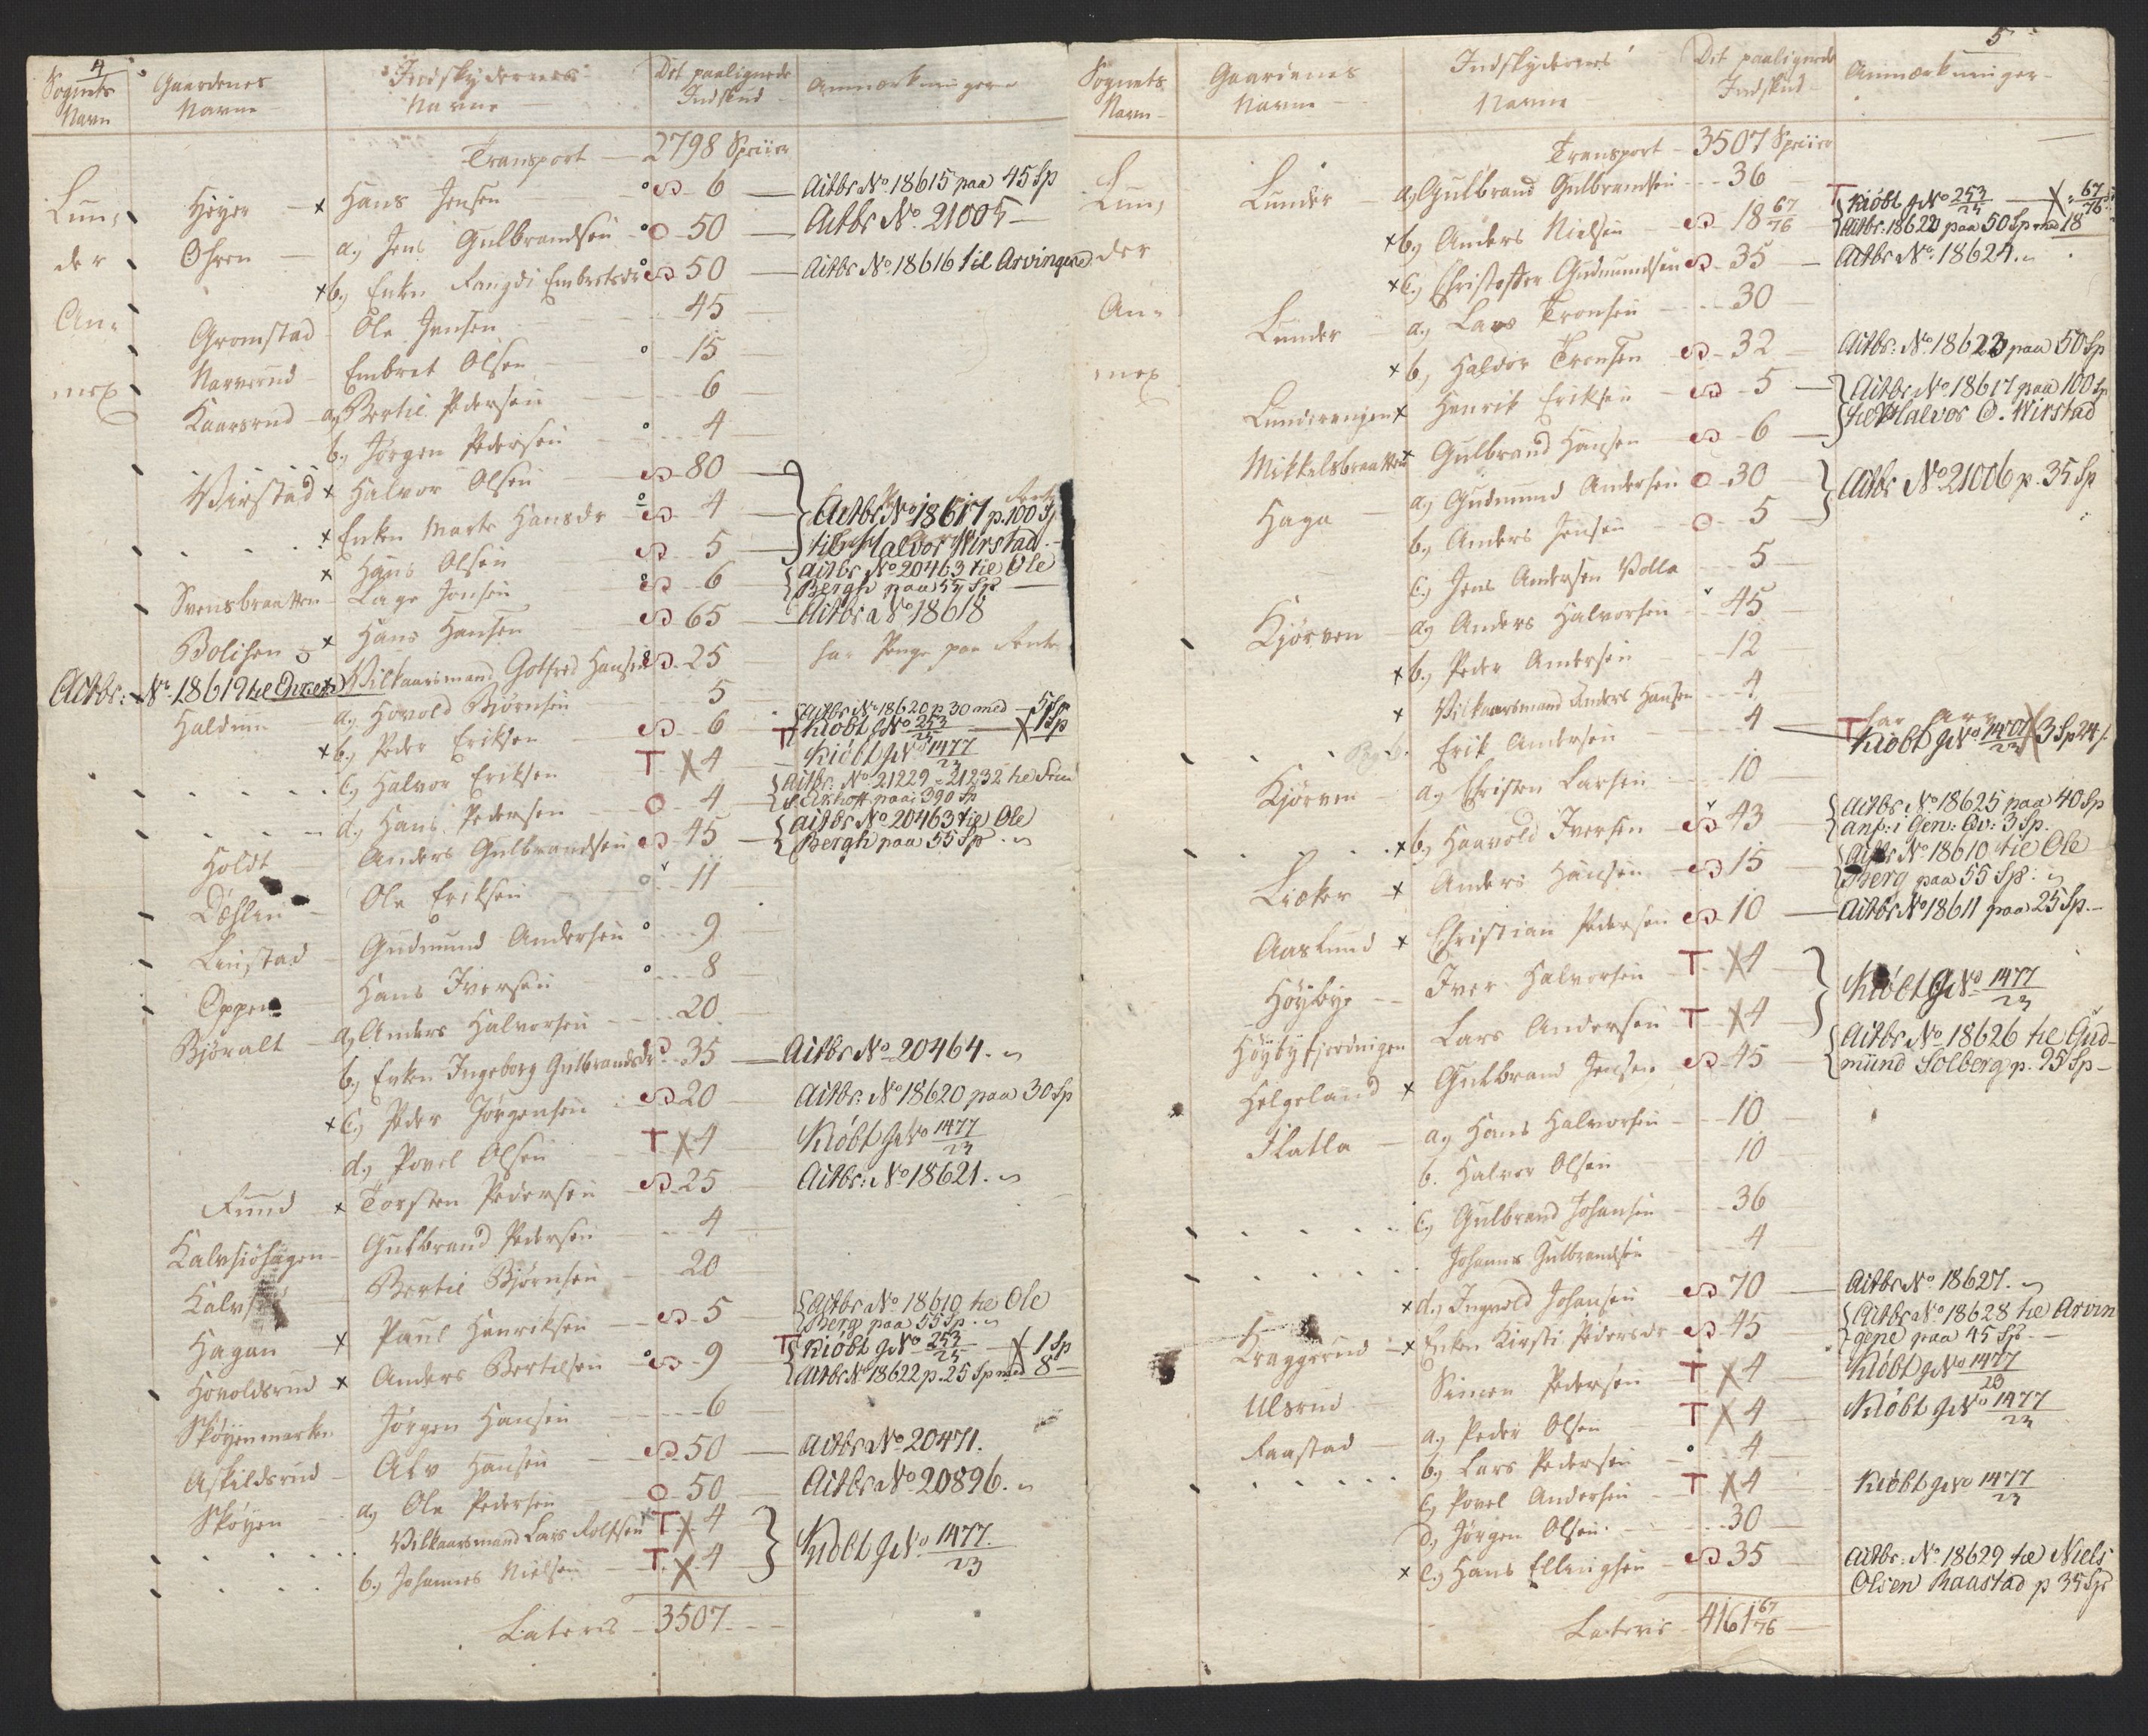 4
Sognets Navn
Gaardenes Navne
Indskydernes Navne
Det paalignede Indskud
Anmærkninger
Transport — 2798 Spiier
Lunder Annex
Høyer — x Hans Jensen — 6 — Actbr No. 18615 paa 45 Sp
Ohren — a, Jens Gulbrandsen — 50 — Actbr No. 21005 —
x b, Enken Rangdi Embretsdr — 50 — Actbr No. 18616 til Arvingene
Gromstad — Ole Jensen — 45 —
Narverud — Embret Olsen — 15 —
Kaarsrud — a, Bertil Pedersen — 6
b, Jørgen Pedersen — 4
Virstad x Halvor Olsen — 80 —
x Enken Marte Hansdr — 4 — Actbr No. 18617 p. 100 Sp
x Hans Olsen — 5 — til Halvor Wirstad. —
Svensbraatten — Lage Jonsen — 6 — Actbr No 20463 til Ole Bergh paa 55 Sp —
Bolisen x Hans Hansen — 65 — Actbr a No 18618
Vilkaarsmand Gotfred Hansen — 25 — har Penge paa Rente
Actbr: No. 18619 til Ohren
Haldum — a, Hovold Biørnsen — 5
x b, Peder Eriksen — 6 — Actbr No. 18620 p 30 med — 5 Sp
T Kiöbt J No 253/23 — X 1 Sp
c, Halvor Eriksen T X 4 — Kiöbt J No 1477/23
d, Hans Pedersen — 4 — Actbr: No 21229 - 21232 til
paa 390 Sp
Holdt — Anders Gulbrandsen — 45 — Actbr No 20463 til Ole Bergh paa 55 Sp.
Dæhlen — Ole Eriksen — 11
Linstad — Gudmund Andersen — 9
Oppen — Hans Iversen — 8
Bjøralt — a, Anders Halvorsen — 20
b, Enken Ingeborg Gulbrandsdr — 35 — Actbr No. 20464.
x c, Peder Jørgensen — 20 — Actbr. No 18620 paa 30 Sp
d, Povel Olsen — T X 4 — Kiöbt J No 1477/23
Fuud — x Torsten Pedersen — 25 — Actbr: No. 18621.
Kalvsiöhagen — Gulbrand Pedersen — 4
Bertil Biørnsen — 20
Hagan x Paul Henriksen — 5 — Actbr No. 18610 til Ole Berg paa 55 Sp.
Hovoldsrud x Anders Bertelsen — 9 — T Kiöbt J No 253/23 — X 1 Sp
Actbr No 18622 p. 25 Sp med 8 —
Skøyenmarken — Jørgen Hansen — 6
Askildsrud — Alv Hansen — 50 — Actbr No. 20471.
Skøyen — a, Ole Pedersen — 50 — Actbr No. 20896.
Vilkaarsmand Lars Rolfsen T X 4
b, Johannes Nielsen — T X 4 — Kiöbt J No. 1477/23
Lateris — 3507 —
5
Sognets Navn
Gaardenes Navne
Indskydernes Navne
Det paalignede Indskud
Anmærkninger
Transport — 3507 Spiier
Lunder Annex
Lunder — a, Gulbrand Gulbrandsen — 36
x b, Anders Nielsen — 18 67/76 — T Kiöbt J No 253/23 — X 67/76
Actbr. 18622 paa 50 Sp med 18
x c, Christoffer Gudmundsen — 35 — Actbr No. 18624.
Lunder — a, Lars Tronsen — 30
x b, Haldor Tronsen — 32 — Actbr: No. 18623 paa 50 Sp
Lunderengen x Henrik Eriksen — 5 — Actbr No. 18617 paa 100 Sp
Mikkelsbraatten x Gulbrand Hansen — 6 — til Halvor O. Wirstad
Haga — a, Gudmund Andersen — 30 — Actbr No. 21006 p. 35 Sp
b, Anders Jensen — 5
c, Jens Andersen Volla — 5
Kjörven — a, Anders Halvorsen — 45
x b, Peder Andersen — 12
x Vilkaarsmand Anders Hansen — 4
Erik Andersen — 4 — T Kiöbt J No 1401/23 X 3 Sp 24 s
Kjörven — a, Christen Larsen — 10
x b, Haavold Iversen — 43 — Actbr: No. 18625 paa 40 Sp
anf: i Gen: Qv: 3 Sp.
Lieker x Anders Hansen — 15 — Actbr No. 18610 til Ole Berg paa 55 Sp.
Aaslund x Christian Pedersen — 10 — Actbr No 18611 paa 25 Sp. —
Höybye — Iver Halvorsen — T X 4
Höybyfjerdingen — Lars Andersen T X 4 — Kiöbt J No 1477/23
Helgeland x Gulbrand Jensen — 45 — Actbr No. 18626 til Gudmund Solberg p. 95 Sp —
Flatla — a, Hans Halvorsen — 10
b. Halvor Olsen — 10
c, Gulbrand Johansen — 36
Johannes Gulbrandsen — 4
x d, Ingvold Johansen — 70 — Actbr No 18627.
Kraggerud x Enken Kirsti Pedersdr — 45 — Actbr a No. 18628 til Arvingene paa 45 Sp. —
Simen Pedersen T X 4 — Kiöbt J No 1477/23
Ulsrud — a, Peder Olsen T X 4 — Kiöbt J No 1477/23
Raastad — b, Lars Pedersen — 4
c, Povel Andersen — T X 4 — Kiöbt J No 1477/23
d, Jørgen Olsen. — 30
x e, Hans Ellingsen — 35 — Actbr: No. 18629 til Niels Olsen Raastad p 35 Sp
Lateris — 4161 67/76